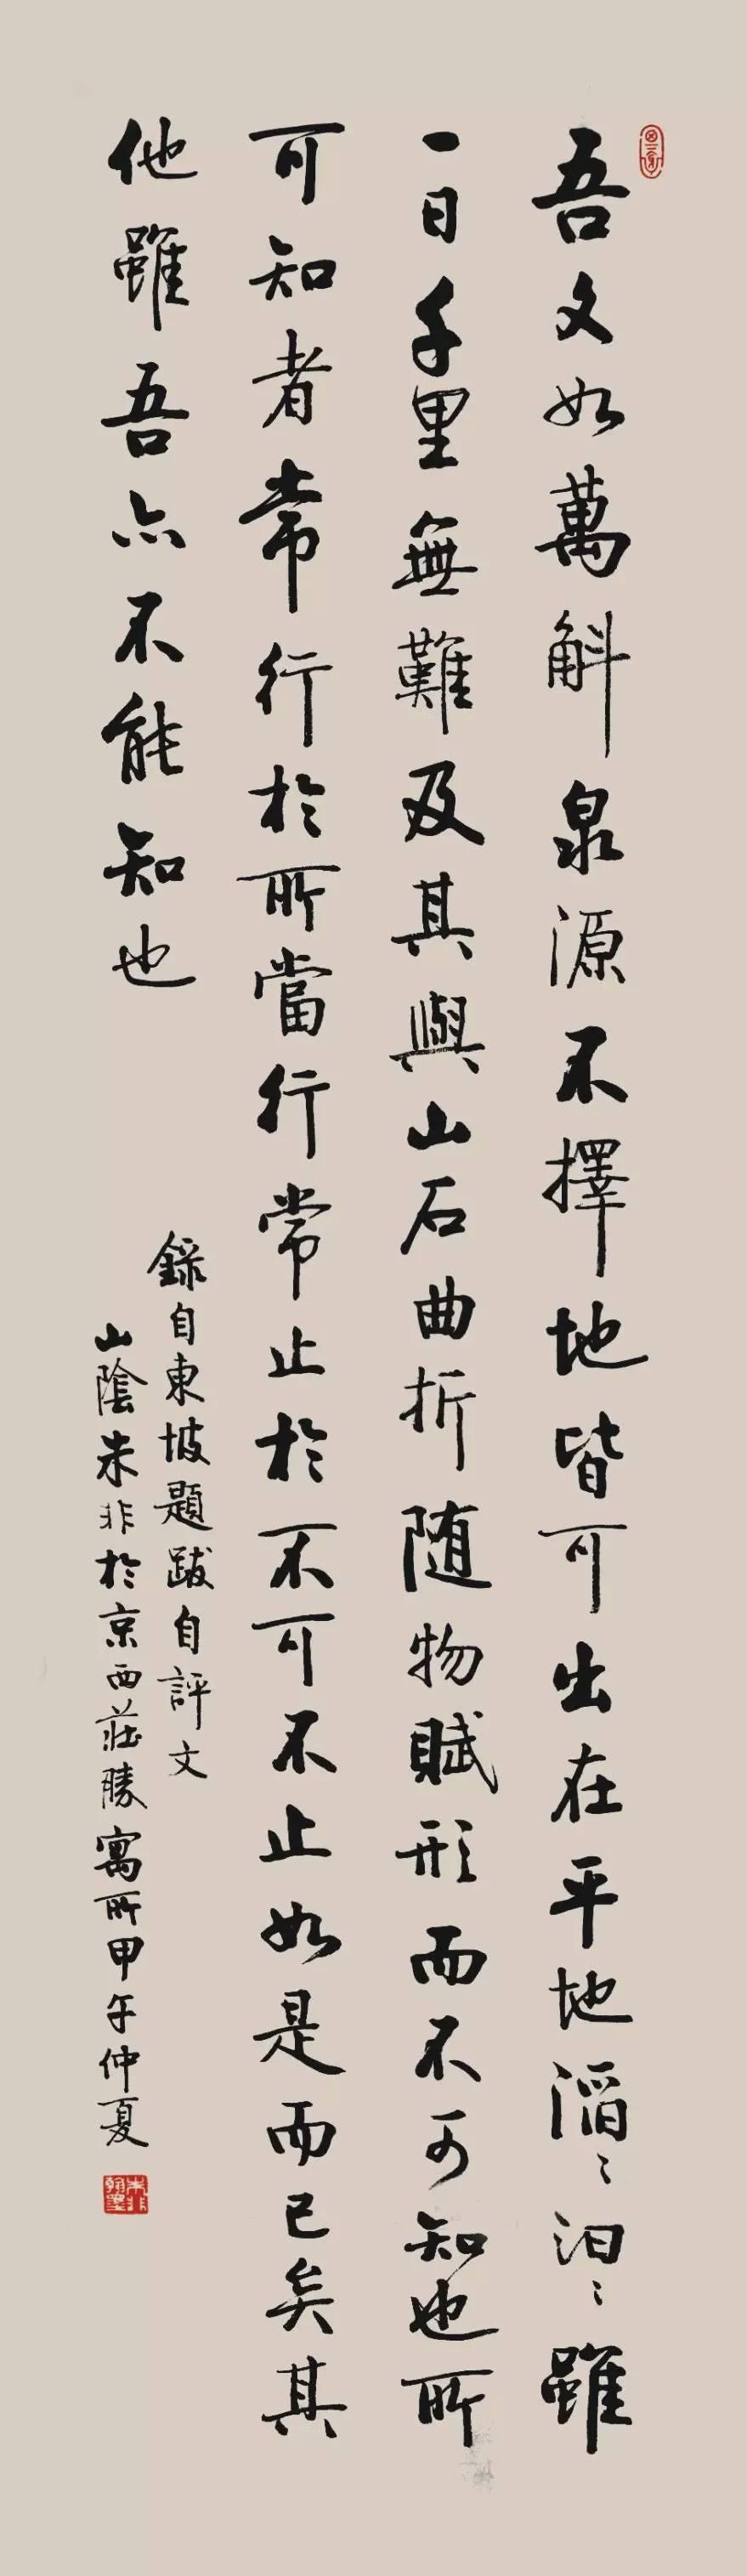 吾文如萬斛泉源不擇地皆可出在平地滔〻汩〻雖
一日千里無難及其與山石曲折随物賦形而不可知也所
可知者常行於所當行常止於不可不止如是而已矣其
他雖吾亦不能知也
錄自東坡題跋自評文
山陰朱非於京西莊勝寓所甲午仲夏
朱非翰墨